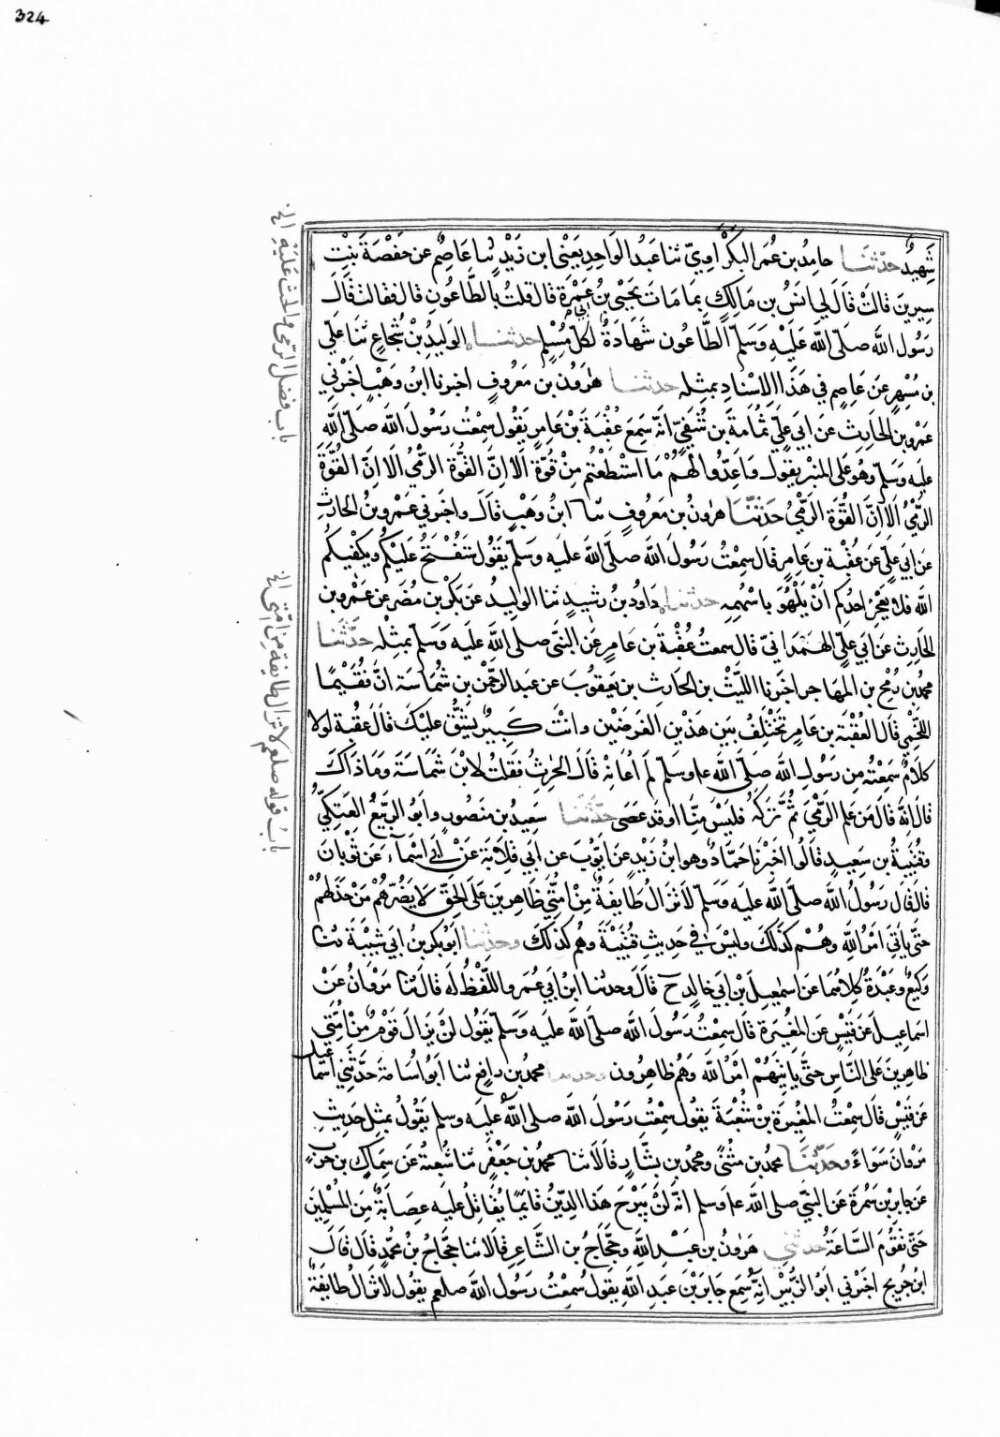 324
شَهِيدٌ حدّثنا حامِدُ بن عُمَر البَكْرَاوِيّ ثنا عَبدُ الوَاحِدِ يَعْنى ابن زَيْدٍ ثنا عَاصِمٌ عن حَفْصَةَ بِنْتِ
سِيرينَ قالَتْ قالَ لِي انسُ بن مَالِكٍ بِمَا مَاتَ يَحيْى بنُ عَمْرَة قالَ قلتُ بالطَّاعُونِ قالَ فقالت قَالَ
رَسُولُ الله صلّى الله عَليْهِ وَسَلّم الطّاعُون شَهَادَةٌ لكُلِّ مُسْلِمٍ حدثنا الوَليدُ بْنُ شُجَاعٍ ثنَا عَليّ
بن مُسْهِرٍ عَن عَاصِمٍ فى هَذَا الاِسْنادِ بمثلِه حدثنا هٰرُونُ بن مَعْرُوفٍ اخبرنا ابنُ وَهْبٍ اخْبَرَنِي
عَمْرو بن الحَارِثِ عَن ابى عَلِيٍّ ثُمَامَةَ بن شُفَيٍّ انّهُ سَمِعَ عُقْبَةَ بْنَ عَامِرٍ يَقُولُ سَمِعْتُ رَسُولَ الله صَلّى الله
عَليهِ وَسَلّم وهُو عَلى المنبَرِ يقولُ وَاعِدُّوا لهُمْ مَا اسْتَطَعْتُم مِنْ قُوّةٍ اَلَا اِنَّ القُوَّةَ الرمْيُ اَلَا اِنَّ القُوَّةَ
الرمْيُ اَلَا اِنَّ القُوَّةَ الرَّمْيُ حَدَثَنا هرُونُ بن مَعرُوفٍ ثنا ابنُ وَهْبٍ قَالَ واخبرَنِي عَمْرو بنُ الحَارثِ
عَن ابي عَليٍّ عَن عُقْبَة بن عَامِرٍ قالَ سَمِعْتُ رَسُولَ الله صلّى الله عَليه وسَلّم يَقُولُ ستُفْتَحُ عَليْكُم ويَكفِيكُم
الله فلا يَعْجِزُ احدُكم اَنْ يَلْهُوَ بِاَسْهُمِهِ حدثنا دَاوُدُ بن رشيدٍ ثنا الوليدُ عَن بَكْرِ بن مُضَرَ عَن عَمْرو بن
الحَارِثِ عَن ابي عَليٍّ الهَمْدَانيّ قَالَ سمعتُ عُقْبَةَ بن عَامِرٍ عَنِ النبىّ صلى الله عَليه وَسَلم بمثْلِه حَدّثَنا
محمدُ بن رُمْحِ بن المهَاجر اخبرنا الليْثُ بن الحَارثِ بن يَعقُوبَ عن عبد الرحْمٰن بن شُمَاسَة انّ فُقَيْمًا
اللخْمِيّ قَالَ لعُقْبَة بن عَامِرٍ تَخْتَلِفُ بَين هذَيْن الغَرضَيْن وانتَ كَبِيرٌ يَشُقُّ عَليْكَ قالَ عقْبَة لولا
كلَامٌ سَمِعْتُه مِن رَسُولِ الله صَلّى الله علوسلم لم اُعَانِه قَالَ الحٰرثُ فقلتُ لابْن شُمَاسَة وَمَا ذاكَ
قالَ انّهُ قَالَ مَن علِمَ الرَّمْيَ ثُمَّ تَرَكَهُ فلَيْسَ مِنّا اوقَد عَصَى حدّثنا سَعِيدُ بن مَنصُورٍ وابُو الرّبيْعِ العَتكِيّ
وقُتَيْبَةُ بن سَعِيدٍ قالُوا اخبَرَنَا حَمَّادٌ وهو ابنُ زَيدٍ عَن ايّوبَ عَن ابي قِلَابَةَ عَنْ اَبى اَسْمَآءَ عَن ثَوْبَانَ
قالَ قَالَ رَسُولُ الله صَلّى الله عليه وَسَلم لَا تَزالُ طَايفَةٌ مِنْ اُمّتِي ظَاهِريْنَ عَلَى الحَقِّ لَا يَضُرّهُمْ مَنْ خَذَلَهُمْ
حتّى يَاتِيَ امْرُ الله وهُم كذَلكَ وليْسَ فى حَدِيثِ قُتَيْبَةَ وهُم كذلكَ وحدثنا ابُو بكر بن ابي شَيْبَةَ ثنا
وَكيعٌ وعَبْدَةُ كلاهُمَا عَن اسمٰعِيلَ بْن ابى خالِدٍ ح قالَ وحدثنا ابنُ ابي عُمَر واللّفْظُ لَه قالَ ثنا مَرْوَانُ عَن
اسماعِيلَ عَن قَيْسٍ عَنِ المُغيرَة قال سَمِعْتُ رَسُولَ الله صَلّى الله عَليه وَسَلّم يَقُولُ لَنْ يَزالَ قَوْمٌ مِنْ اُمَّتِي
ظاهِرِينَ عَلى النَّاسِ حتّى يَاتِيَهُمْ امْرُ الله وَهُم ظَاهِرُون وحدثنا محمدُ بن رافعٍ ثنا ابُو اُسَامَة حَدّثَنِي اسْمَا
عيل
عَن قَيْسٍ قالَ سمِعْتُ المغيرَةَ بْنَ شُعْبَةَ يقُولُ سَمِعْتُ رَسُولَ الله صلى الله عَليه وسلم يَقُولُ بمثلِ حَديثِ
مَرْوَان سَوَاءً وحَدّثنا محمدُ بن مُثَنّى ومحمدُ بن بشّارٍ قَالَا ثنا محمدُ بن جَعْفَرٍ ثنا شُعْبَةُ عَن سِمَاكِ بن حَرْبٍ
عَن جَابِرِ بْن سَمُرَةَ عَنِ النبيّ صلى الله علوسلم انّه لَنْ يَبْرَحَ هَذا الدِّينُ قَايمًا يُقَاتِلُ عَليه عِصَابَةٌ مِنَ المُسْلمِينَ
حتّى تَقُومَ السَّاعَةُ حدثني هَرُونُ بن عَبْدِ الله وحَجّاجُ بن الشّاعِر قالَا ثنا حَجّاجُ بنُ محَمّدٍ قَالَ قَالَ
ابنُ جُرَيج اخبَرَني ابُو الزُّبَيْر انّهُ سَمِعَ جَابرَ بْنَ عَبدِ الله يقولُ سَمِعْتُ رَسُولَ الله صلعم يقولُ لَا تَزَالُ طَايفَةٌ
باب فضل الرمى والحث عَليْه الخ
بابُ قوله صلعم لا تزال طايفة من امّتى الخ